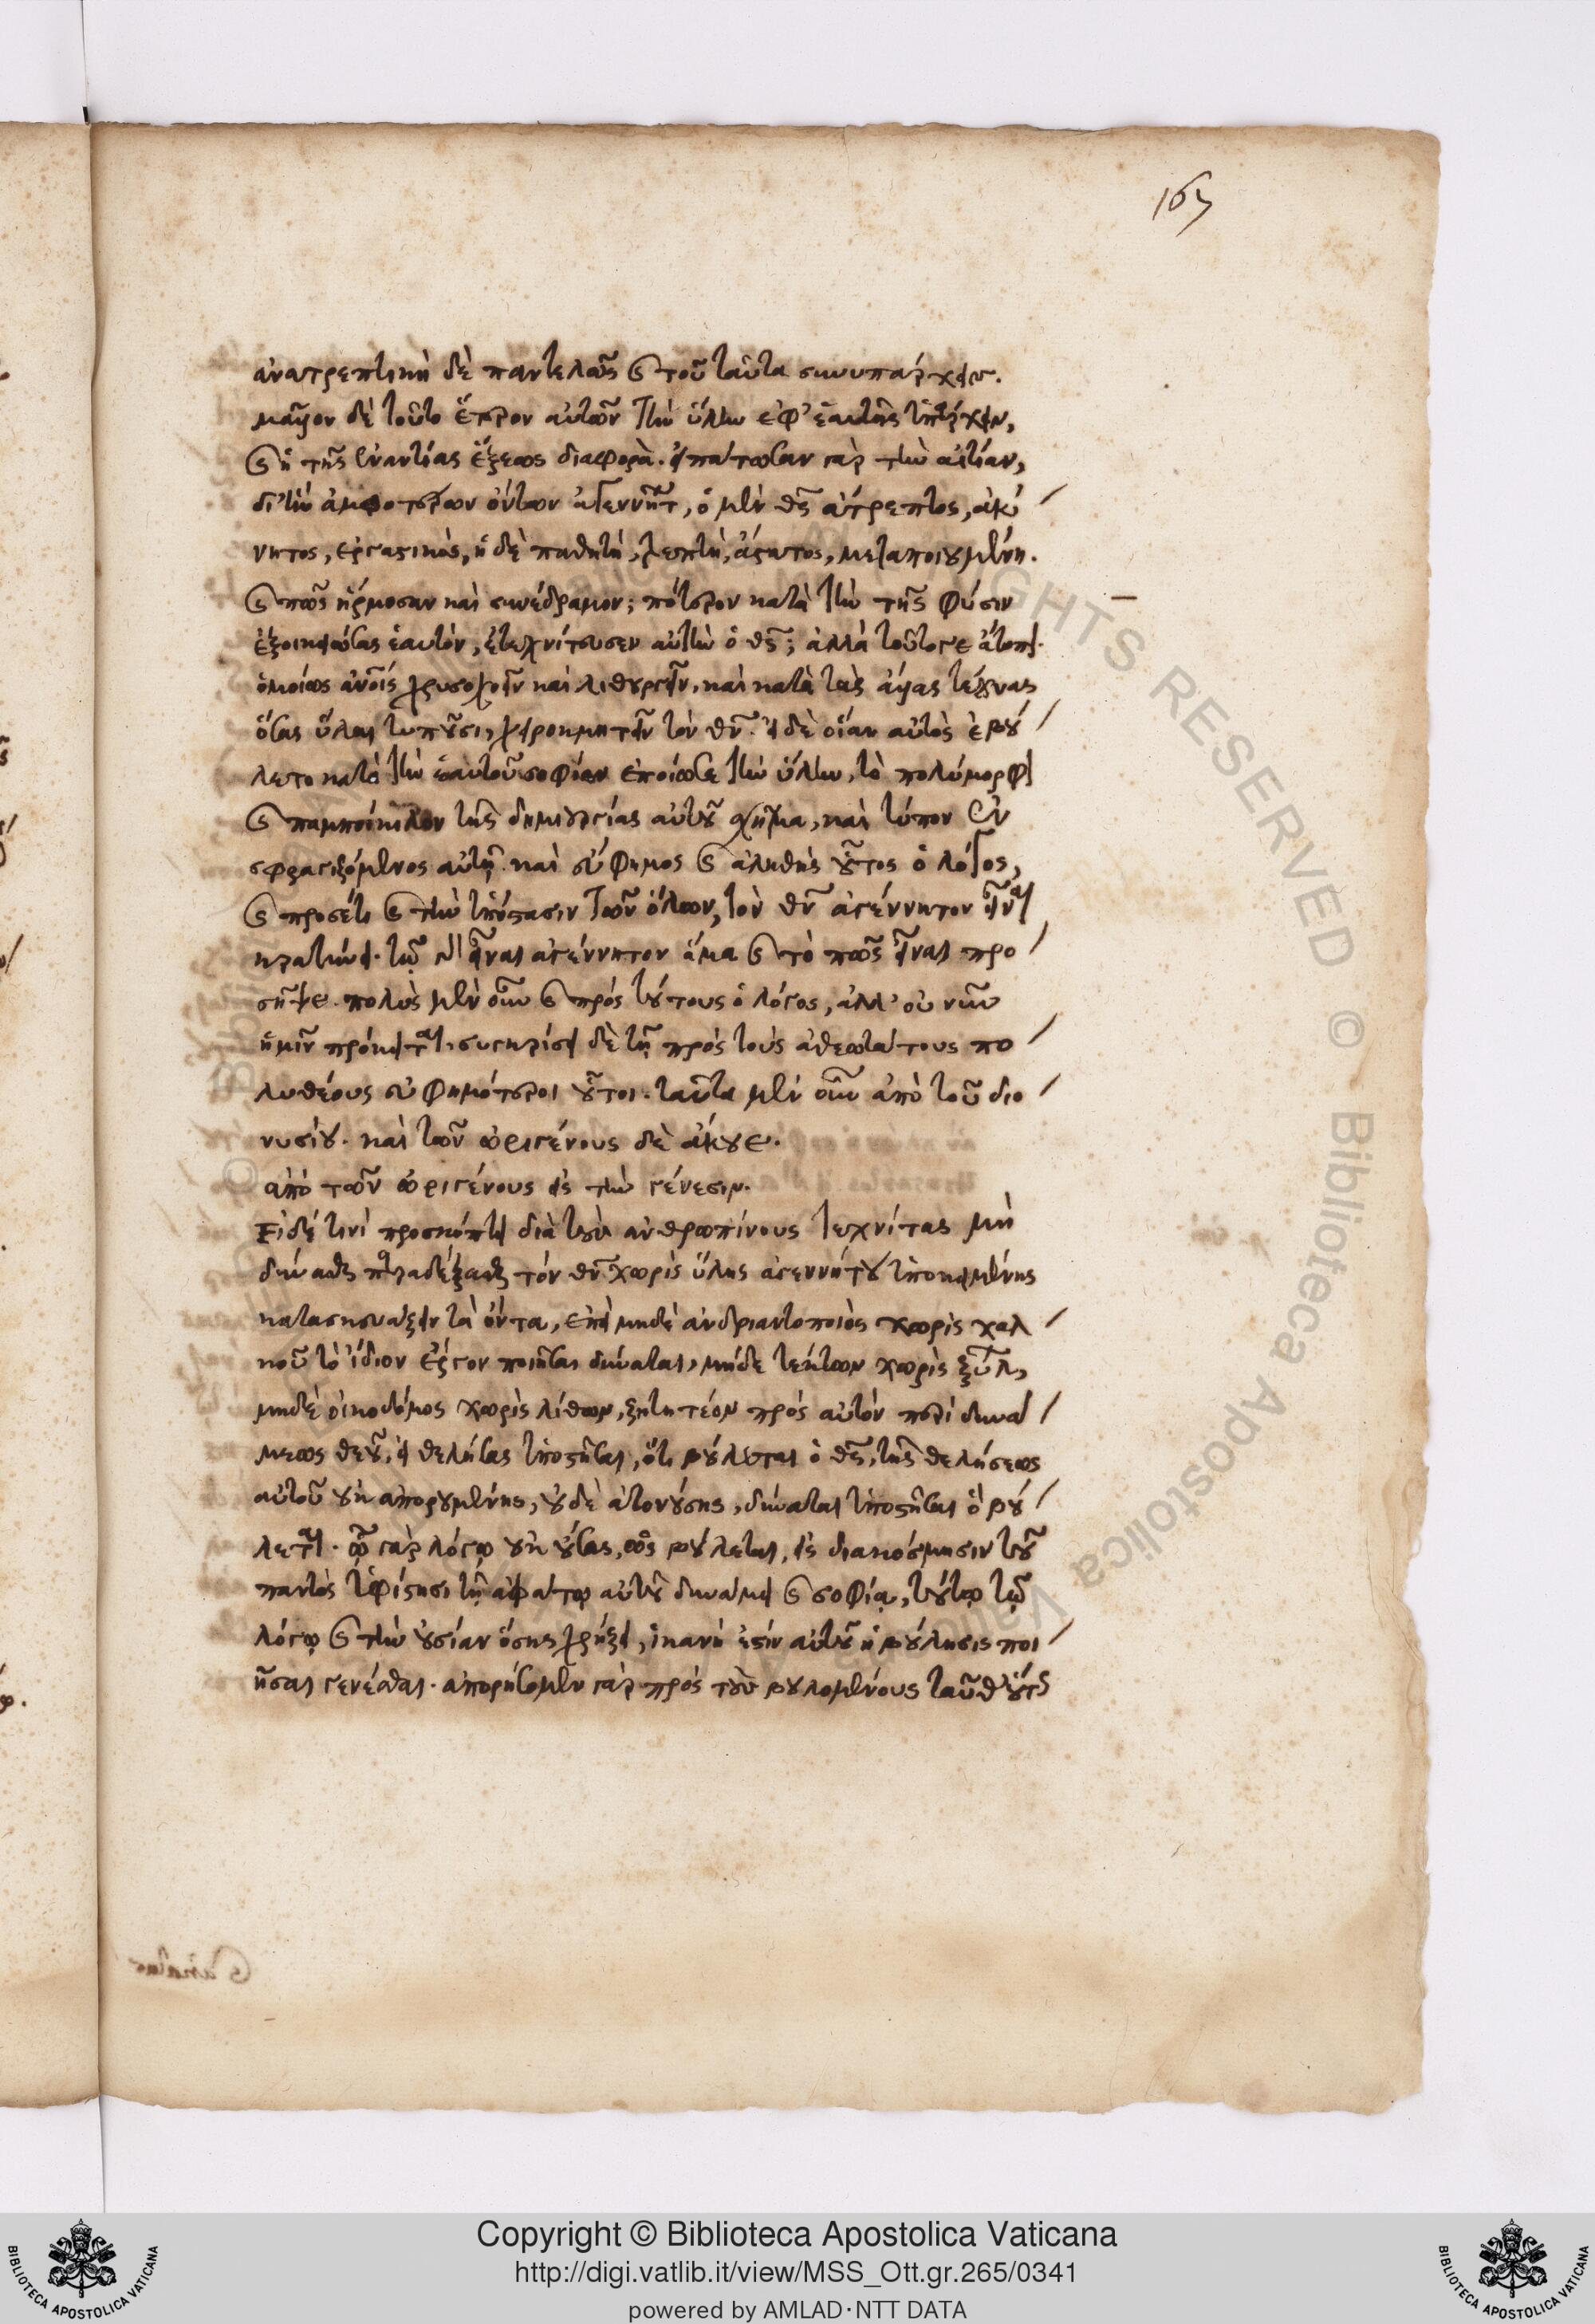 167
ἀνατρεπτικὴ δὲ παντελῶς καὶ τοῦ ταῦτα συνυπάρχειν.
μᾶλλον δὲ τοῦτο ἕτερον αὐτῶν τὴν ὕλην ἐφ' ἑαυτῆς ὑπάρχειν,
καὶ ἡ τῆς ἐναντίας ἕξεως διαφορά. εἰπάτωσαν γὰρ τὴν αἰτίαν,
δι' ἣν ἀμφοτέρων ὄντων ἀγεννήτ, ὁ μὲν θς ἄτρεπτος, ἀκί
νητος, ἐργαστικός, ἡ δὲ παθητή, τρεπτή, ἄστατος, μεταποιουμένη.
καὶ πῶς ἥρμοσαν καὶ συνέδραμον; πότερον κατὰ τὴν τῆς φύσιν
ἐξοικειώσας ἑαυτόν, ἐτεχνίτευσεν αὐτὴν ὁ θς; ἀλλὰ τοῦτο γε ἄτοπ.
ὁμοίως ἀνοις χρυσοχοεῖν καὶ λιθουργεῖν, καὶ κατὰ τὰς ἄλλας τέχνας
ὅσας ὗλαι τυποῦσι, χειροκμητεῖν τὸν θν. εἰ δὲ οἵαν αὐτὸς ἐβού
λετο κατὰ τὴν ἑαυτοῦ σοφίαν ἐποίωσε τὴν ὕλην, τὸ πολύμορφ
καὶ παμποίκιλον τῆς δημιουργίας αὐτοῦ σχῆμα, καὶ τύπον ἐν
σφραγιζόμενος αὐτῇ. καὶ εὔφημος καὶ ἀληθὴς οὗτος ὁ λόγος,
καὶ προσέτι καὶ τὴν ὑπόστασιν τῶν ὅλων, τὸν θν ἀγέννητον εἶναι
κρατύνει. τῷ εἶναι ἀγέννητον ἅμα καὶ τὸ πῶς εἶναι προ
σῆψε. πολὺς μὲν οὖν καὶ πρὸς τούτους ὁ λόγος, ἀλλ' οὐ νῦν
ἡμῖν πρόκειται, συγκρίσει δὲ τῇ πρὸς τοὺς ἀθεωτάτους πο
λυθέους εὐφημότεροι οὗτοι. ταῦτα μὲν οὖν ἀπὸ τοῦ διο
νυσίου. καὶ τῶν ὠριγένους δὲ ἄκουε.
ἀπὸ τῶν ὠριγένους εἰς τὴν γένεσιν.
Εἰ δέ τινι προσκόπτει διὰ τοὺς ἀνθρωπίνους τεχνίτας μὴ
δύνασθαι παραδέξασθαι τὸν θν χωρὶς ὕλης ἀγεννήτου ὑποκειμένης
κατασκευάζειν τὰ ὄντα, ἐπεὶ μηδὲ ἀνδριαντοποιὸς χωρὶς χαλ
κοῦ τὸ ἴδιον ἔργον ποιῆσαι δύναται, μηδὲ τέκτων χωρὶς ξύλ,
μηδὲ οἰκοδόμος χωρὶς λίθων, ζητητέον πρὸς αὐτὸν περὶ δυνά
μεως θεοῦ, εἰ θελήσας ὑποστῆσαι, ὅτι βούλεται ὁ θς, τῆς θελήσεως
αὐτοῦ οὐκ ἀπορουμένης, οὐδὲ ἀτονούσης, δύναται ὑποστῆσαι ὃ βού
λεται. ᾧ γὰρ λόγῳ οὐκ οὔσας, ὡς βούλεται, εἰς διακόσμησιν τοῦ
παντὸς ὑφίστησι τῇ ἀφάτῳ αὐτοῦ δυνάμει καὶ σοφίᾳ, τούτῳ τῷ
λόγῳ καὶ τὴν οὐσίαν ὅσης χρῄζει, ἱκανή ἐστιν αὐτοῦ ἡ βούλησις ποι
ῆσαι γενέσθαι. ἀπορήσομεν γὰρ πρὸς τοὺς βουλομένους ταῦθ' οὕτς
Copyright © Biblioteca Apostolica Vaticana
http://digi.vatlib.it/view/MSS_Ott.gr.265/0341
powered by AMLAD·NTT DATA